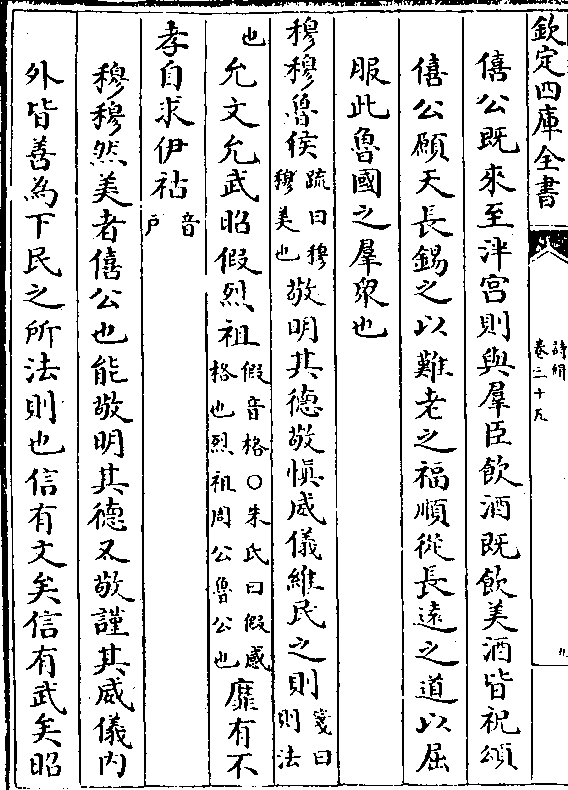 欽定四庫全書
詩緝
卷三十五
九
僖公既來至泮宮則與羣臣飲酒既飲美酒皆祝頌
僖公願天長錫之以難老之福順從長遠之道以屈
服此魯國之羣衆也
穆穆魯侯疏曰穆穆美也敬明其德敬慎威儀維民之則箋曰則法
也允文允武昭假烈祖假音格○朱氏曰假感格也烈祖周公魯公也靡有不
孝自求伊祜音户
穆穆然美者僖公也能敬明其德又敬謹其威儀内
外皆善為下民之所法則也信有文矣信有武矣昭